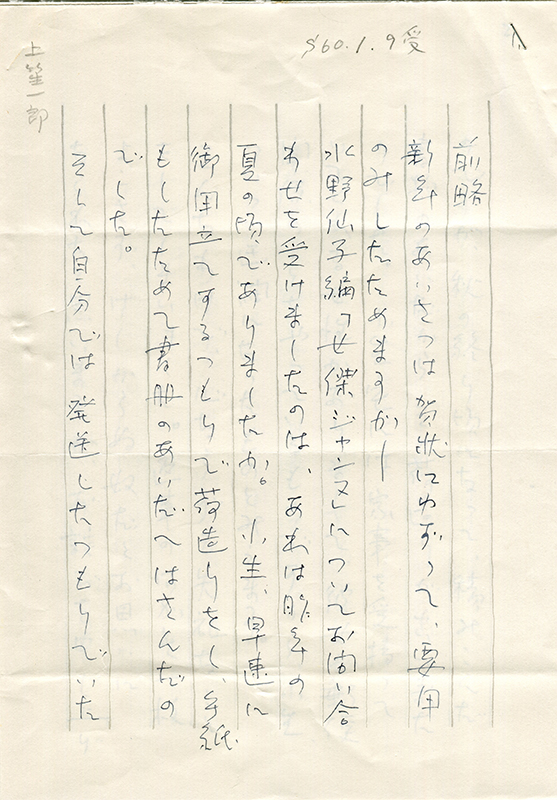 S60.1.9受
上笙一郎
前略
新年のあいさつは賀状にゆずって、要用
のみしたためますが―
水野仙子編『女傑ジャンヌ』についてお問い合
わせを受けましたのは、あれは昨年の
夏の頃でありましたか。小生、早速に
御用立てするつもりで荷造りをし、手紙
もしたためて書册のあいだへはさんだの
でした。
そして自分では発送したつもりでいた